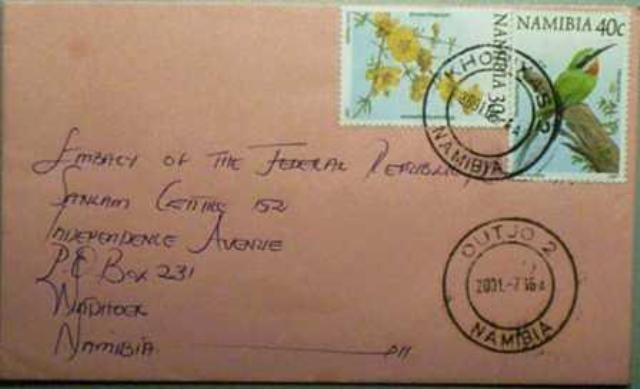 NAMIBIA 40c
NAMIBIA 30c
KHORIXAS 2
NAMIBIA
EMBACY OF THE FEDERAL REPUBLIC
SANLAM CENTRE 152
INDEPENDENCE AVENUE
P.O BOX 231
WINDHOEK
NAMIBIA
OUTJO 2
2001.-7.16
NAMIBIA